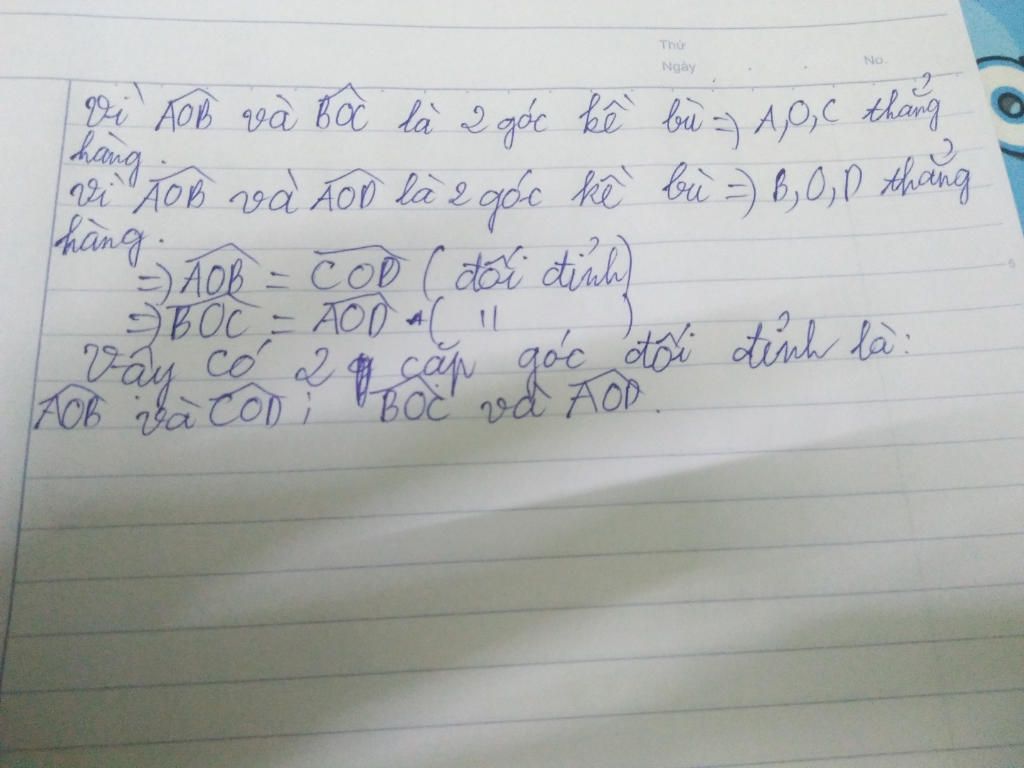 Thứ
Ngày . . . No.
Vì AOB và BOC là 2 góc kề bù => A,O,C thẳng
hàng.
Vì AOB và AOD là 2 góc kề bù => B,O,D thẳng
hàng.
=> AOB = COD (đối đỉnh)
=> BOC = AOD ( " )
Vậy có 2 cặp góc đối đỉnh là:
AOB và COD ; BOC và AOD.